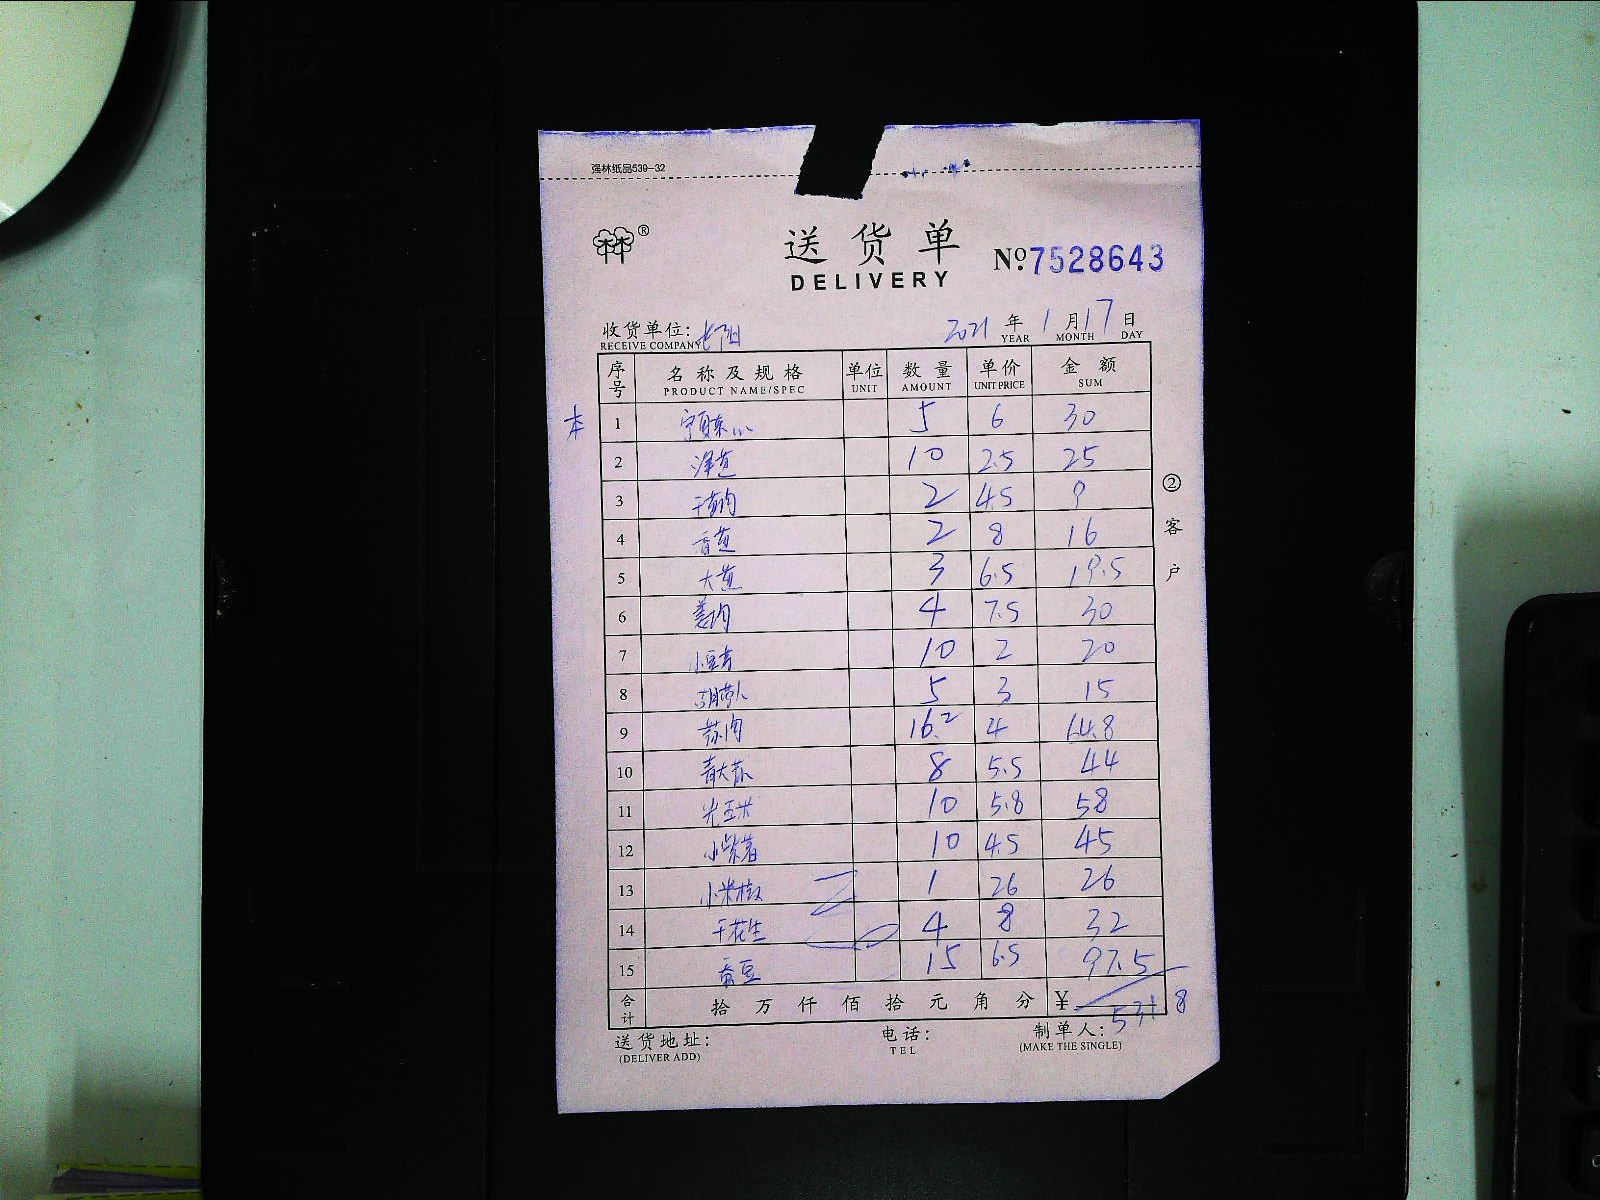 强林纸品539-32
林®
送货单
DELIVERY
№:7528643
收货单位:
RECEIVE COMPANY
2021 年 1 月 17 日
YEAR MONTH DAY
序号 名称及规格 单位 数量 单价 金额
PRODUCT NAME/SPEC UNIT AMOUNT UNIT PRICE SUM
1 5 6 30
2 10 2.5 25
3 2 4.5 9
4 香葱 2 8 16
5 大葱 3 6.5 19.5
6 姜肉 4 7.5 30
7 10 2 20
8 胡萝卜 5 3 15
9 蒜肉 16.2 4 64.8
10 青大蒜 8 5.5 44
11 光玉米 10 5.8 58
12 小紫薯 10 4.5 45
13 小米椒 1 26 26
14 干花生 4 8 32
15 蚕豆 15 6.5 97.5
合计 拾 万 仟 佰 拾 元 角 分 ¥
531.8
送货地址: 电话: 制单人:
(DELIVER ADD) TEL (MAKE THE SINGLE)
②客户